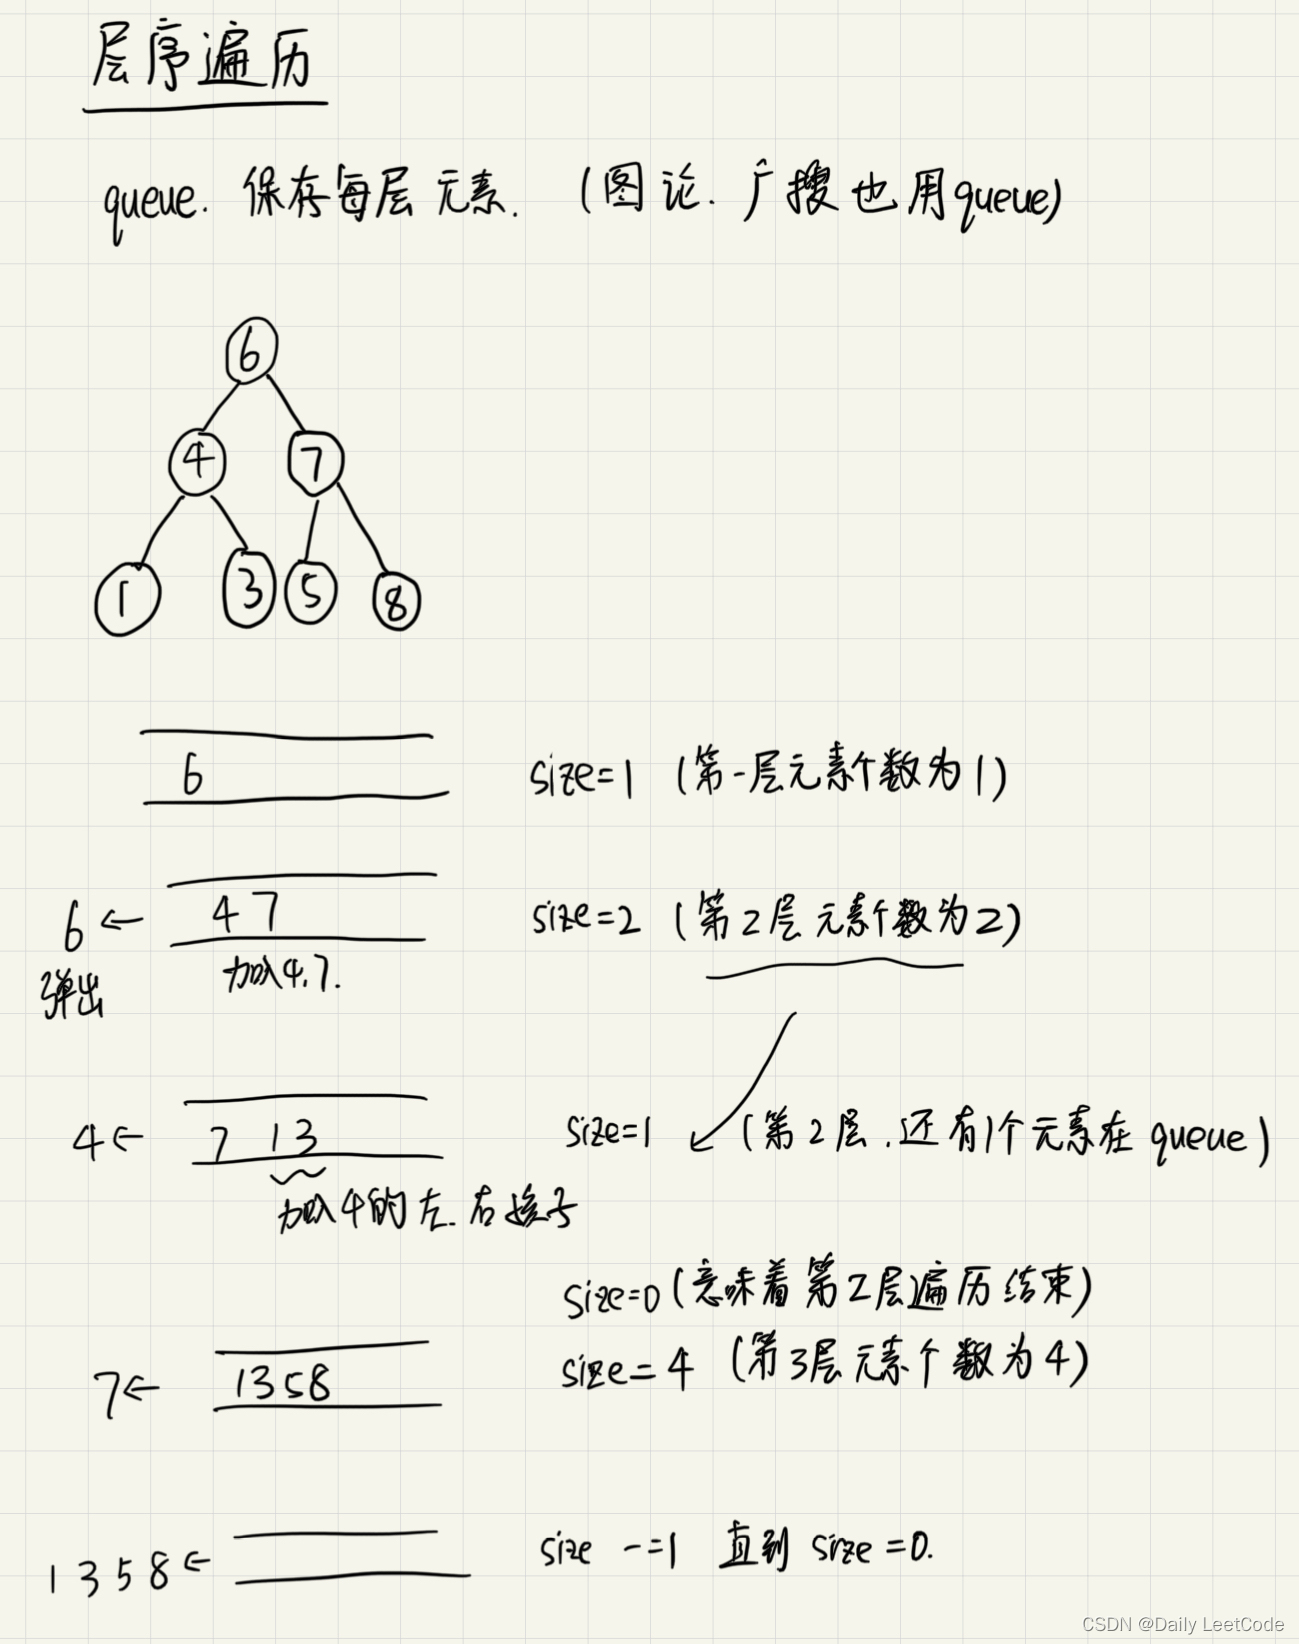 层序遍历
queue. 保存每层元素. (图论. 广搜也用queue)
6
4 7
1 3 5 8
6 size=1 (第一层元素个数为1)
6 ← 4 7 size=2 (第2层元素个数为2)
弹出 加入4.7.
4 ← 7 1 3 size=1 (第2层.还有1个元素在queue)
加入4的左.右孩子
size=0 (意味着第2层遍历结束)
7 ← 1 3 5 8 size=4 (第3层元素个数为4)
1 3 5 8 ← size -=1 直到 size=0.
CSDN @Daily LeetCode